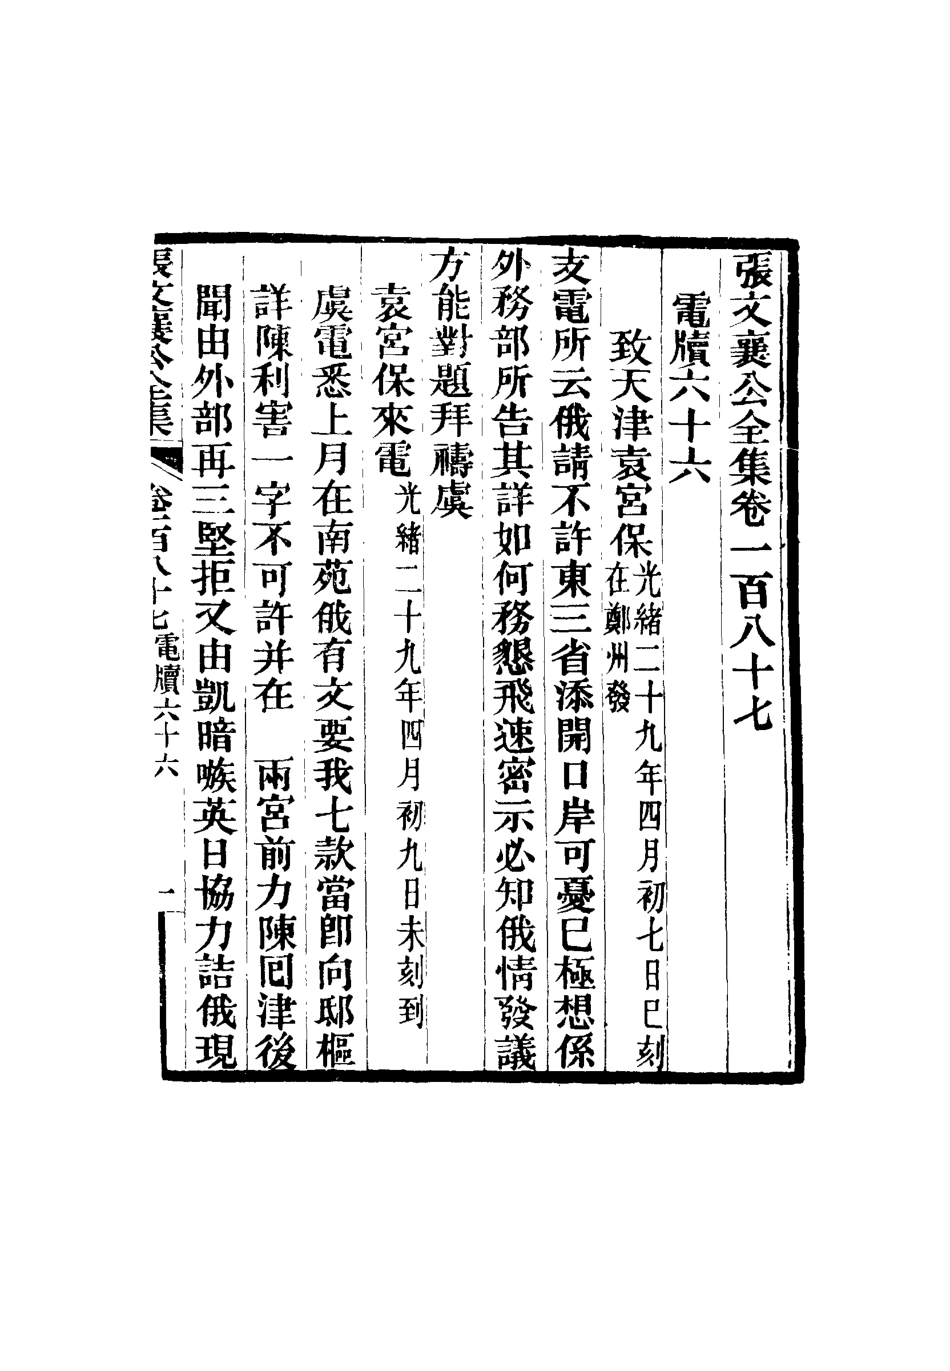 張文襄公全集卷一百八十七
電牘六十六
致天津袁宮保光緒二十九年四月初七日巳刻
在鄭州發
支電所云俄請不許東三省添開口岸可憂已極想係
外務部所告其詳如何務懇飛速密示必知俄情發議
方能對題拜禱虞
袁宮保來電光緒二十九年四月初九日未刻到
虞電悉上月在南苑俄有文要我七款當卽向邸樞
詳陳利害一字不可許并在　兩宮前力陳囘津後
聞由外部再三堅拒又由凱暗嗾英日協力詰俄現
張文襄公全集　卷一百八十七　電牘六十六　一